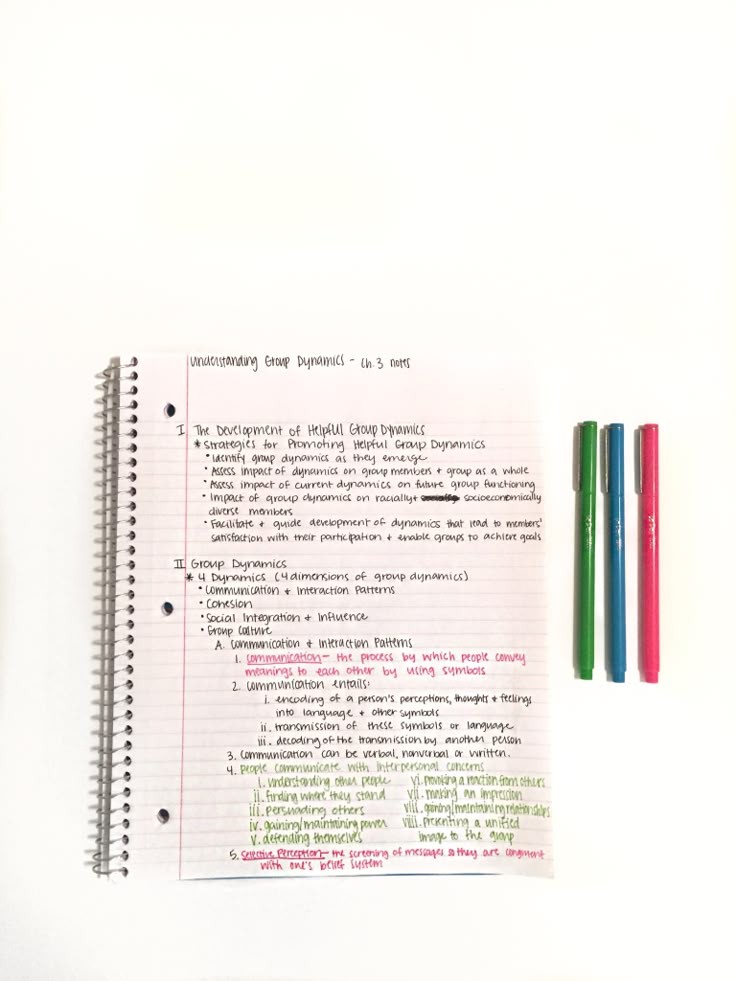 Understanding Group Dynamics - Ch. 3 notes
I The Development of Helpful Group Dynamics
* Strategies for Promoting Helpful Group Dynamics
• Identify group dynamics as they emerge
• Assess impact of dynamics on group members + group as a whole
• Assess impact of current dynamics on future group functioning
• Impact of group dynamics on racially + socioeconomically
diverse members
• Facilitate + guide development of dynamics that lead to members'
satisfaction with their participation + enable groups to achieve goals
II Group Dynamics
* 4 Dynamics (4 dimensions of group dynamics)
• Communication + Interaction Patterns
• Cohesion
• Social Integration + Influence
• Group Culture
A. Communication + Interaction Patterns
1. Communication - the process by which people convey
meanings to each other by using symbols
2. Communication entails:
i. encoding of a person's perceptions, thoughts + feelings
into language + other symbols
ii. transmission of these symbols or language
iii. decoding of the transmission by another person
3. Communication can be verbal, nonverbal or written.
4. People communicate with interpersonal concerns
i. understanding other people
ii. finding where they stand
iii. persuading others
iv. gaining/maintaining power
v. defending themselves
vi. provoking a reaction from others
vii. making an impression
viii. gaining/maintaining relationships
viiii. presenting a unified
image to the group
5. Selective Perception - the screening of messages so they are congruent
with one's belief system